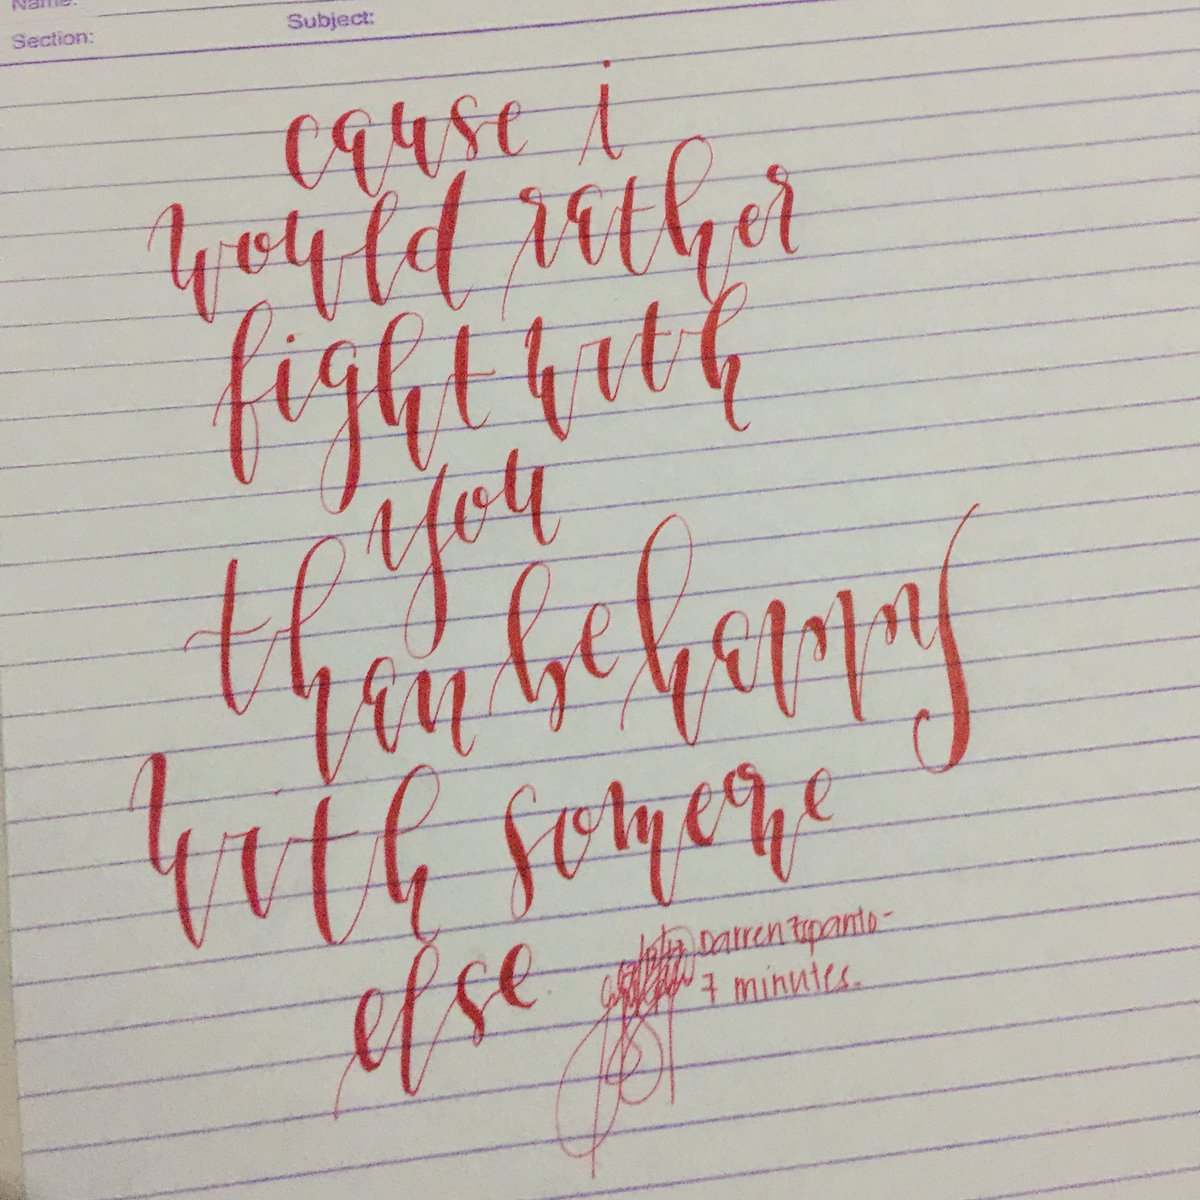 Name:
Subject:
Section:
cause i
would rather
fight with
you
than be happy
with someone
else
Darren Espanto-
7 minutes.